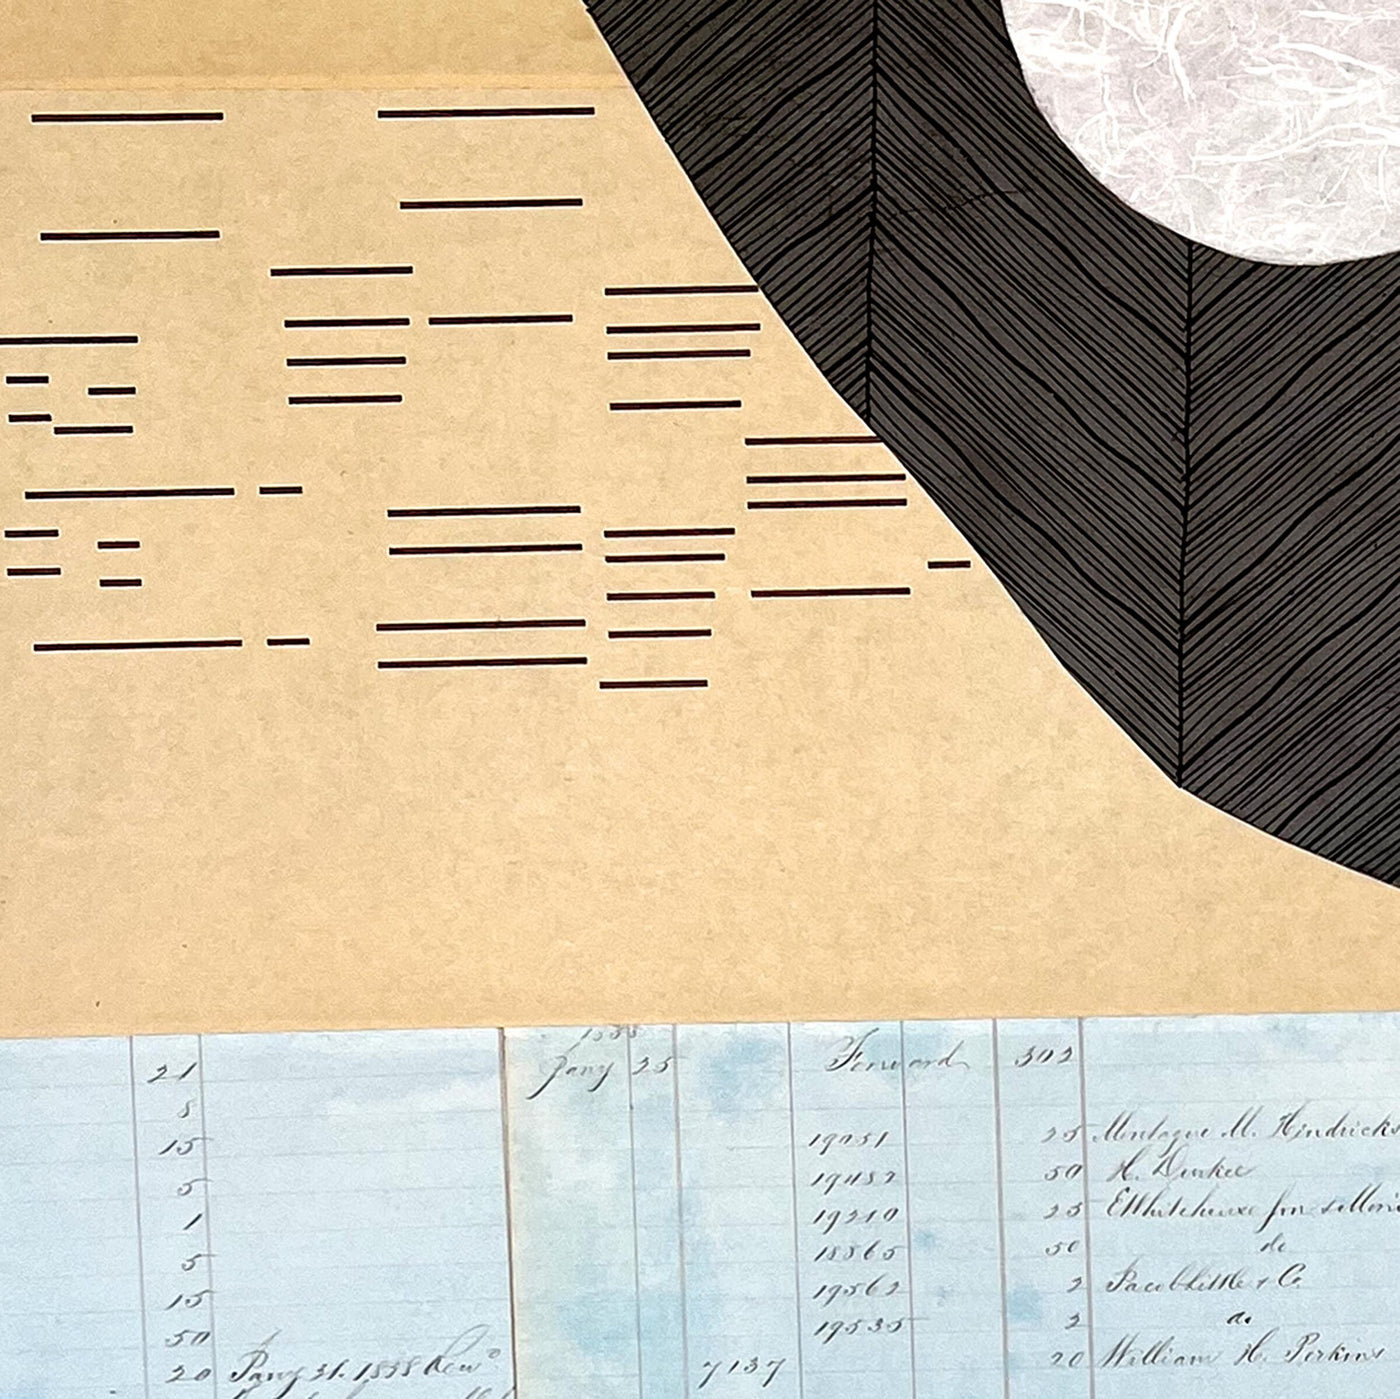 21
8
15
5
1
5
15
50
20 Jany 31. 1838
1838
Jany 25 Forward 302
19051 25 Montague M. Hendricks
19482 50 H. Durkee
19210 25 E Whitehouse for
18865 50 do
19562 2 Jacob Little & Co.
19535 2 do
7137 20 William H. Perkins